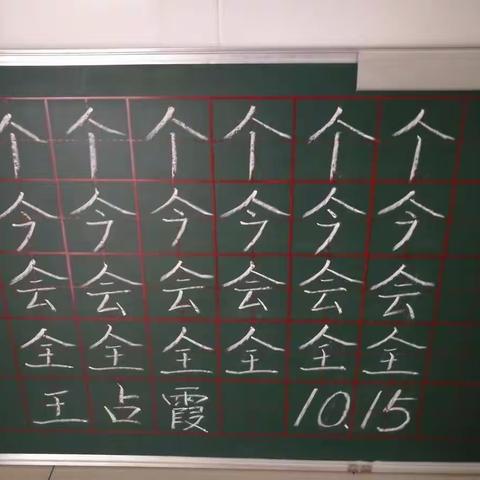 个个个个个个
今今今今今今
会会会会会会
全全全全全全
王占霞 10.15